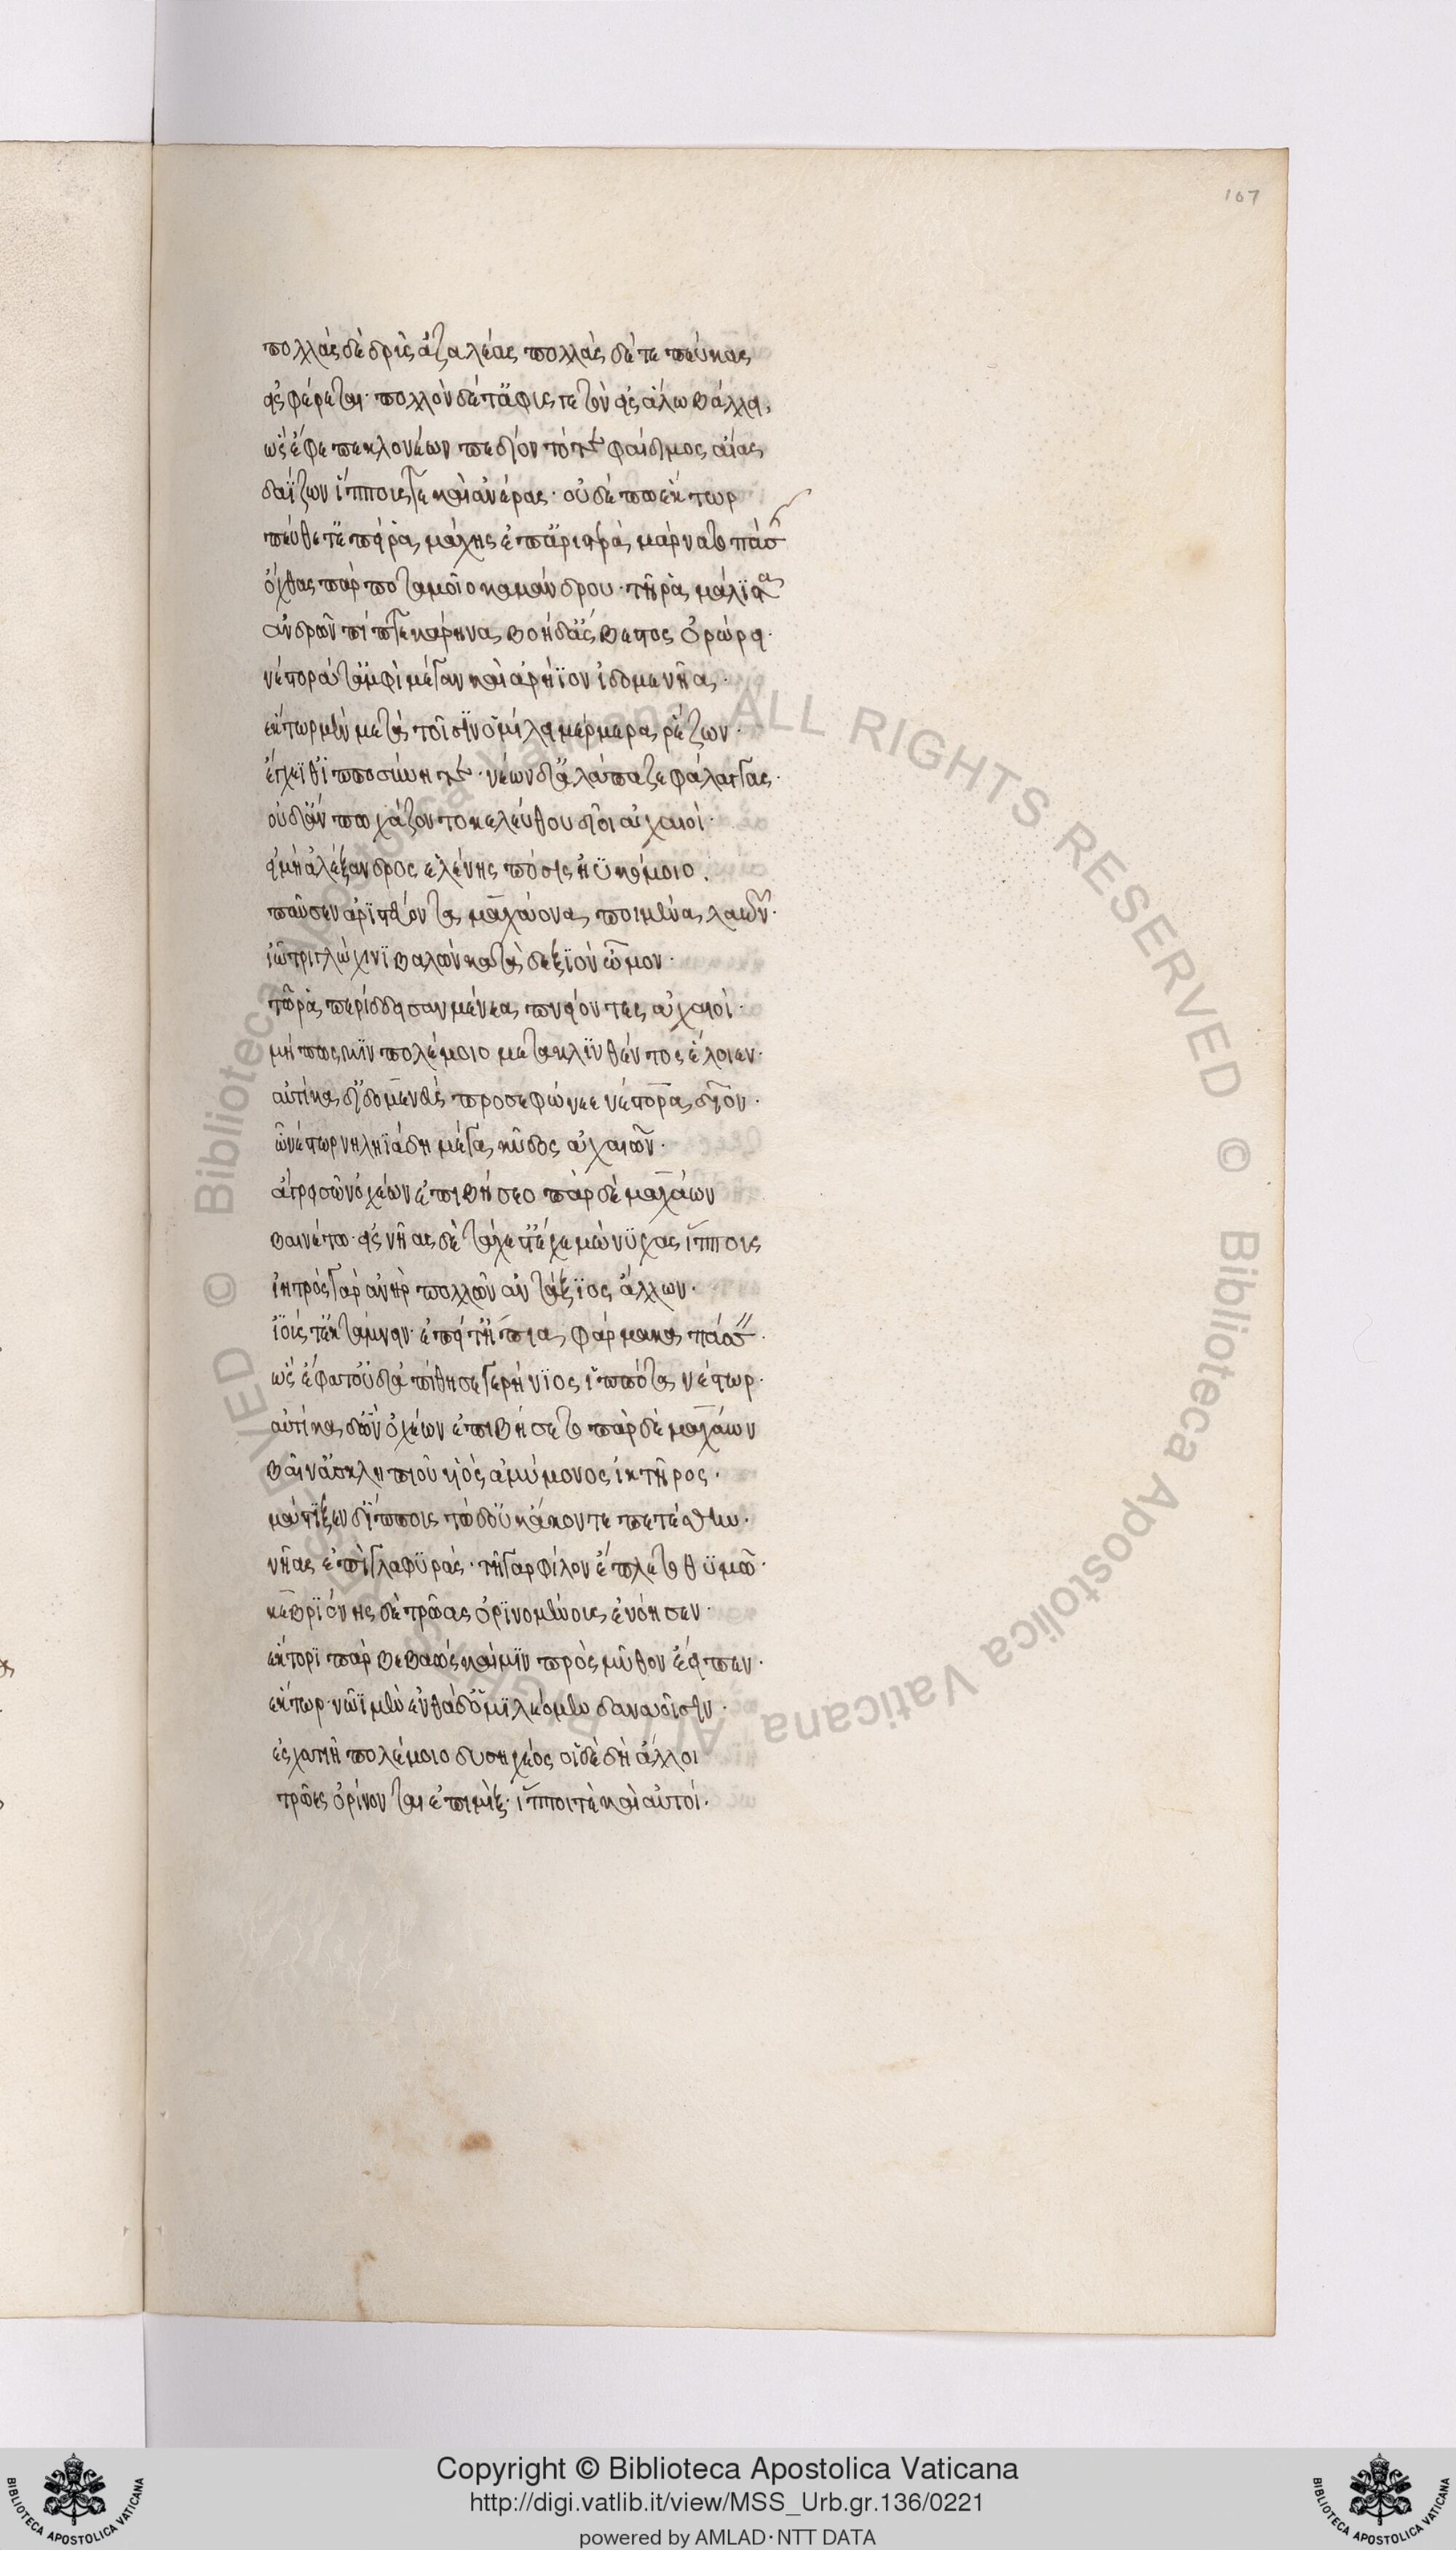 107
πολλὰς δὲ δρῦς ἀζαλέας πολλὰς δέ τε πεύκας
ἐσφέρεται· πολλὸν δέ τ' ἀφυσγετὸν εἰς ἅλα βάλλει,
ὡς ἔφεπε κλονέων πεδίον τότε φαίδιμος αἴας
δαΐζων ἵππους τε καὶ ἀνέρας· οὐδέ πω ἕκτωρ
πεύθετ' ἐπεί ῥα μάχης ἐπ' ἀριστερὰ μάρνατο πάσης
ὄχθας παρ ποταμοῖο σκαμάνδρου· τῇ ῥα μάλιστα
ἀνδρῶν πίπτε κάρηνα βοὴ δ' ἄσβεστος ὀρώρει·
νέστορά τ' ἀμφὶ μέγαν καὶ ἀρήϊον ἰδομενῆα·
ἕκτωρ μὲν μετὰ τοῖσιν ὁμίλει μέρμερα ῥέζων·
ἔγχεΐ θ' ἱπποσύνη τε· νέων δ' ἀλάπαζε φάλαγγας·
οὐδ' ἄν πω χάζοντο κελεύθου δῖοι ἀχαιοί·
εἰ μὴ ἀλέξανδρος ἑλένης πόσις ἠϋκόμοιο.
παῦσεν ἀριστεύοντα μαχάονα ποιμένα λαῶν·
ἰῷ τριγλώχινι βαλὼν κατὰ δεξιὸν ὦμον·
τῷ ῥα περίδδεισαν μένεα πνείοντες ἀχαιοί·
μή πώς μιν πολέμοιο μετακλινθέντος ἕλοιεν·
αὐτίκα δ' ἰδομενεὺς προσεφώνεε νέστορα δῖον·
ὦ νέστωρ νηληϊάδη μέγα κῦδος ἀχαιῶν·
ἄγρει σῶν ὀχέων ἐπιβήσεο παρ δὲ μαχάων
βαινέτω· ἐς νῆας δὲ τάχιστ' ἔχε μώνυχας ἵππους
ἰητρὸς γὰρ ἀνὴρ πολλῶν ἀντάξιος ἄλλων·
ἰούς τ' ἐκτάμνειν· ἐπί τ' ἤπια φάρμακα πάσσειν·
ὣς ἔφατ' οὐδ' ἀπίθησε γερήνιος ἱππότα νέστωρ·
αὐτίκα δ' ὧν ὀχέων ἐπιβήσετο παρ δὲ μαχάων
βαῖν' ἀσκληπιοῦ υἱὸς ἀμύμονος ἰητῆρος·
μάστιξεν δ' ἵππους τὼ δ' οὐκ ἄκοντε πετέσθην·
νῆας ἐπὶ γλαφυράς· τῇ γαρ φίλον ἔπλετο θυμῷ·
κεβριόνης δὲ τρῶας ὀρινομένους ἐνόησεν·
ἕκτορι παρ βεβαώς καί μιν πρὸς μῦθον ἔειπεν·
ἕκτωρ· νῶϊ μὲν ἐνθάδ' ὁμιλέομεν δαναοῖσιν·
ἐσχατιῇ πολέμοιο δυσηχέος οἱ δὲ δὴ ἄλλοι
τρῶες ὀρίνονται ἐπιμὶξ· ἵπποι τὲ καὶ αὐτοί·
Copyright © Biblioteca Apostolica Vaticana
http://digi.vatlib.it/view/MSS_Urb.gr.136/0221
powered by AMLAD·NTT DATA